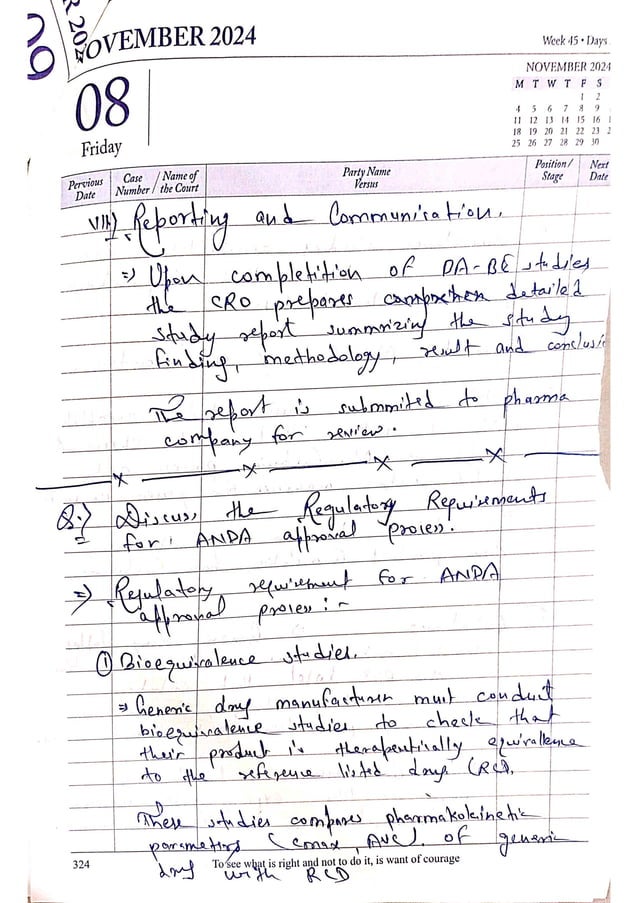 R 2024
09
NOVEMBER 2024
Week 45 • Days
08
Friday
NOVEMBER 2024
M T W T F S
1 2
4 5 6 7 8 9
11 12 13 14 15 16
18 19 20 21 22 23 2
25 26 27 28 29 30
Pervious Date
Case Number / Name of the Court
Party Name Versus
Position / Stage
Next Date
VII) Reporting and Communication.
=> Upon completition of BA-BE studies
the CRO prepares detailed
study report summrizing the study
finding, methodology, result and conclusi
The report is submmited to pharma
company for review.
Q:) Discuss the Regulatory Requirements
for ANDA approval process.
=> Regulatory requirement for ANDA
approval process :-
① Bioequivalence studies.
=> Generic drug manufacturer must conduct
bioequivalence studies to check that
their product is therapeutically equivalence
to the reference listed drugs (RLD).
These studies compares pharmakokinetic
parameters (Cmax, AUC) of generic
324 To see what is right and not to do it, is want of courage
drug with RLD